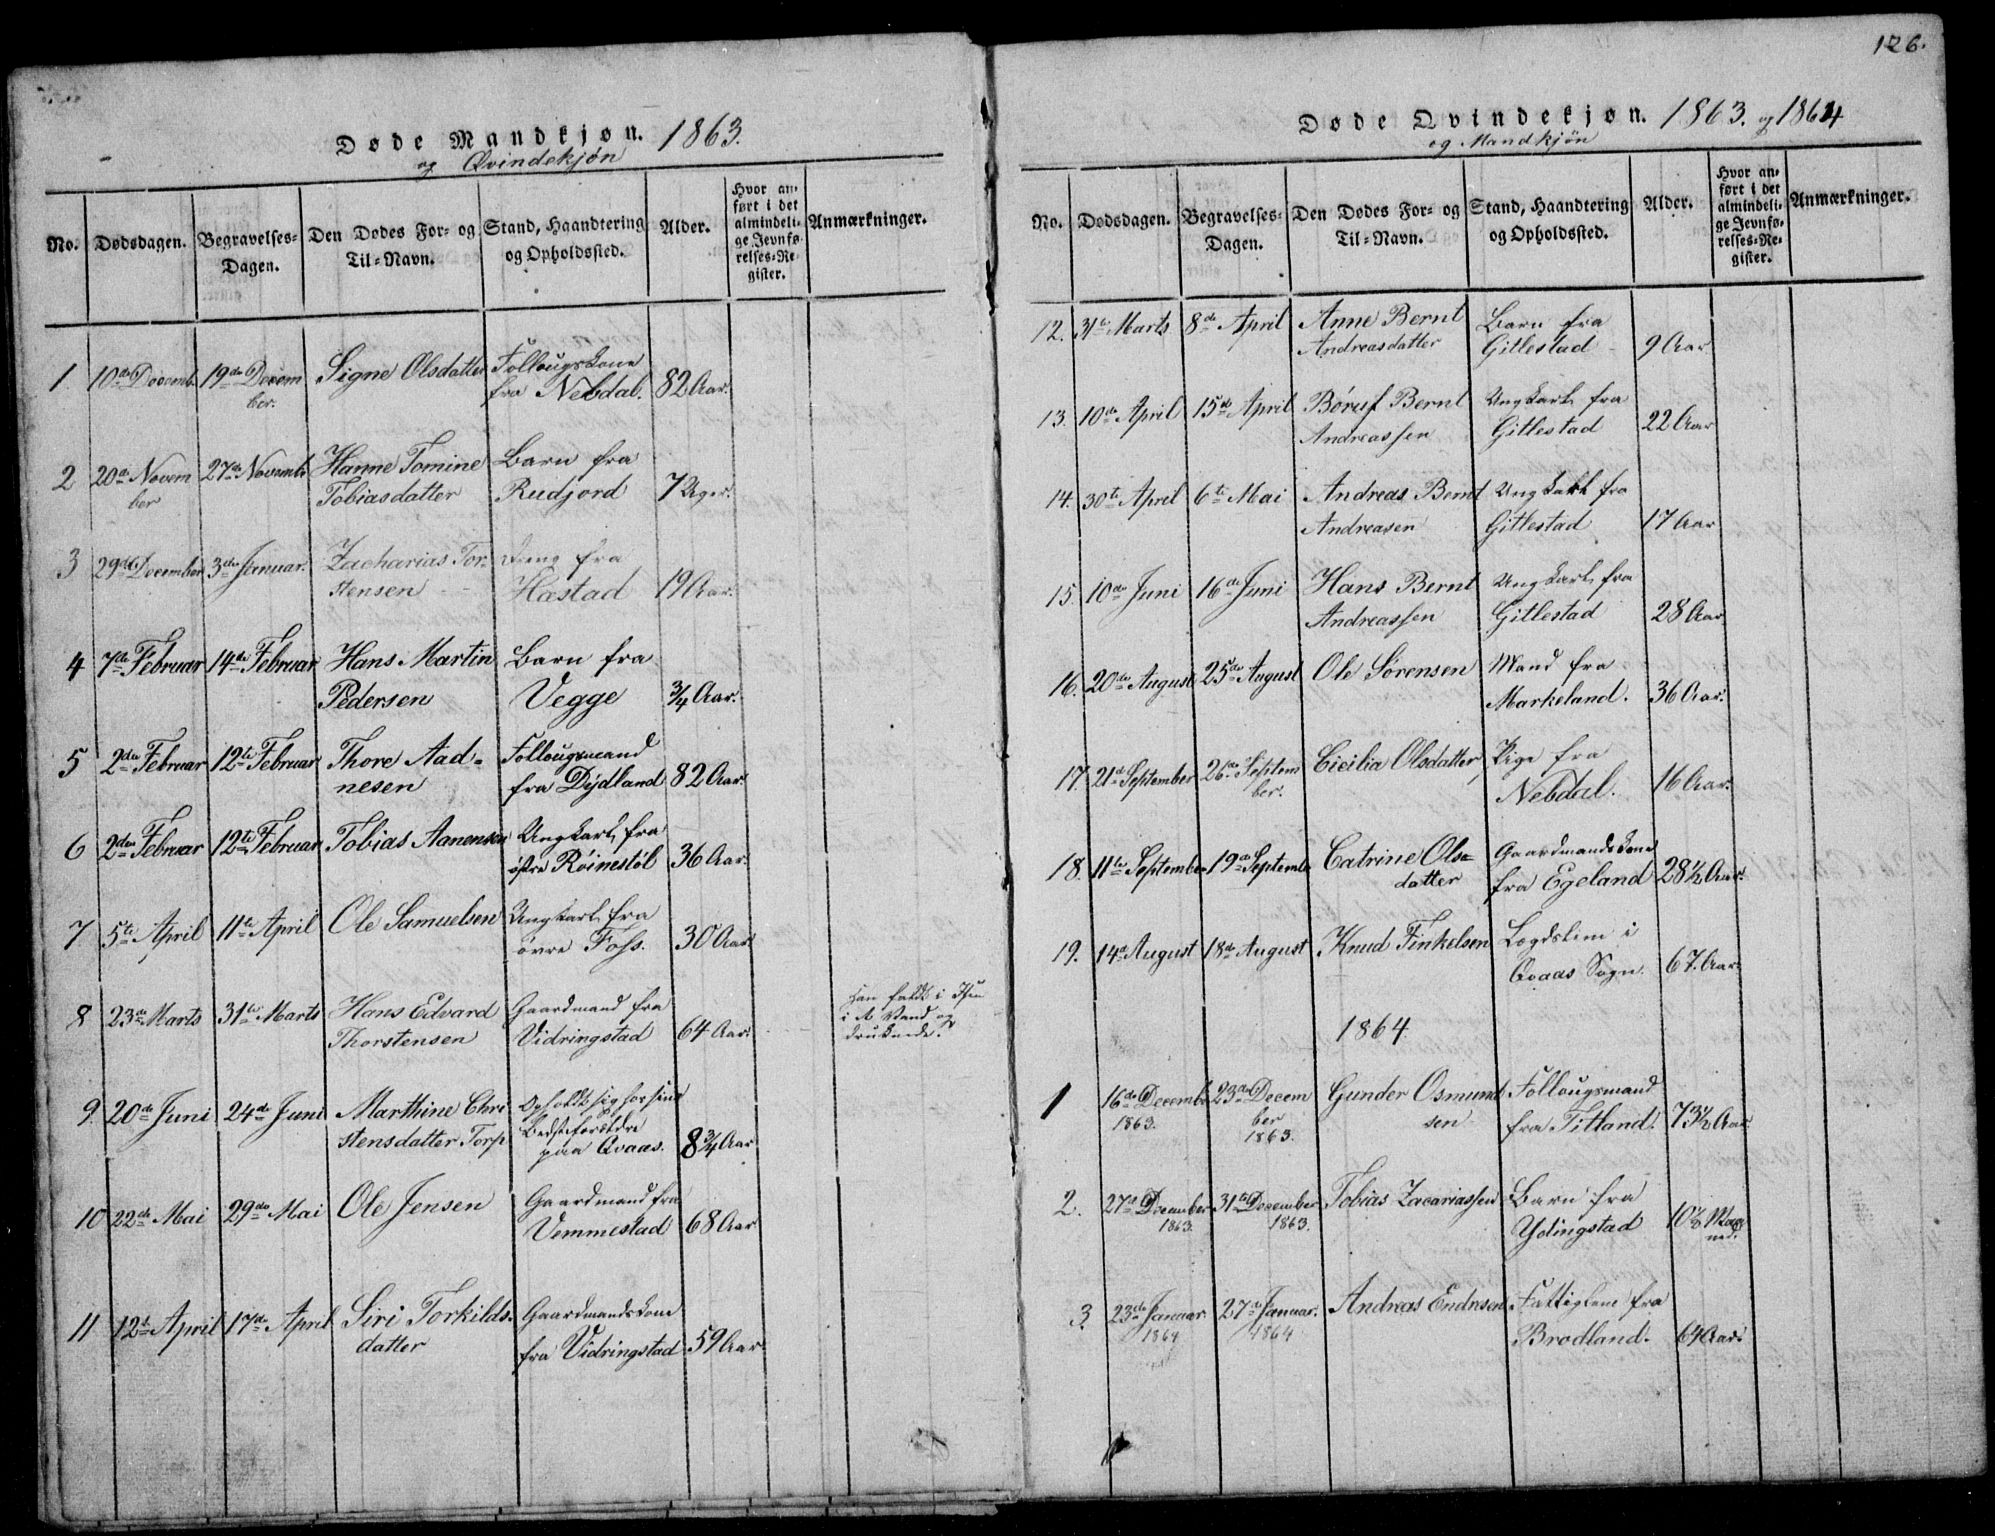 126.
Døde Mandkjøn. 1863.
og Qvindekjøn
No.
Dødsdagen.
Begravelses-
Dagen.
Den Dødes For- og
Til-Navn.
Stand, Haandtering
og Opholdssted.
Alder.
Hvor an-
ført i det
almindeli-
ge Jevnfø-
relses-Re-
gister.
Anmærkninger.
1 10de Decemb. 19de Decem Signe Olsdatter Follougskone
ber. fra Nebdal. 82 Aar.
2 20de Novem 27de Novemb Hanne Tomine Barn fra
ber Tobiasdatter Rudjord 7 Uger.
3 29de December 3de Januar. Zacharias Tor- Dreng fra
stensen Hæstad 19 Aar.
4 7de Februar 14de Februar Hans Martin Barn fra
Pedersen Vegge 3/4 Aar.
5 2den Februar 12te Februar Thore Aad- Follougsmand
nesen fra Dydland 82 Aar.
6 2den Februar 12te Februar Tobias Aanensen Ungkarl fra
østre Röinestöl 36 Aar.
7 5te April 11te April Ole Samuelsen Ungkarl fra
övre Foss. 30 Aar.
8 23de Marts 31te Marts Hans Edvard Gaardmand fra Han faldt i Isen
Thorstensen Vidringstad 64 Aar. i et Vand og
druknede.
9. 20de Juni 24de Juni Marthine Chri Opholdt sig hos sine
stensdatter Torp Bedsteforældre
paa Qvaas. 8 3/4 Aar
10 22de Mai 29de Mai Ole Jensen Gaardmand fra
Vemmestad 68 Aar
11 12te April 17de April Siri Torkilds- Gaardmandskone
datter fra Vidringstad 59 Aar
Døde Qvindekjøn. 1863. og 1864
og Mandkjön
No.
Dødsdagen.
Begravelses-
Dagen.
Den Dødes For- og
Til-Navn.
Stand, Haandtering
og Opholdssted.
Alder.
Hvor an-
ført i det
almindeli-
ge Jevnfø-
relses-Re-
gister.
Anmærkninger.
12. 31te Marts 8de April Anne Bernt Barn fra
Andreasdatter Gitlestad 9 Aar.
13. 10de April 15de April Böruf Bernt Ungkarl fra
Andreassen Gitlestad 22 Aar
14. 30te April 6te Mai Andreas Bernt Ungkarl fra
Andreasen Gitlestad 17 Aar
15. 10de Juni 16de Juni Hans Bernt Ungkarl fra
Andreassen Gitlestad 28 Aar
16. 20de August 25de August Ole Sörensen Mand fra
Markeland. 36 Aar.
17. 21de September 26de Septem Cicilia Olsdatter Pige fra
ber. Nebdal. 16 Aar.
18. 11te September 19de Septemb Catrine Ols= Gaardmandskone
datter fra Egeland 28 1/2 Aar.
19. 14de August 18de August Knud Finkelsen Lægdslem i
Qvaas Sogn. 67. Aar.
1864.
1 16de Decemb 23de Decem Gunder Osmund Follougsmand
1863. ber sen fra Titland. 73 1/2 Aar
1863.
2. 27de December 31te December Tobias Zacariassen Barn fra
1863. 1863. Ydingstad
ned.
3. 23de Januar 27de Januar. Andreas Endresen Fattiglem fra
1864 1864 Brodland. 64 Aar.